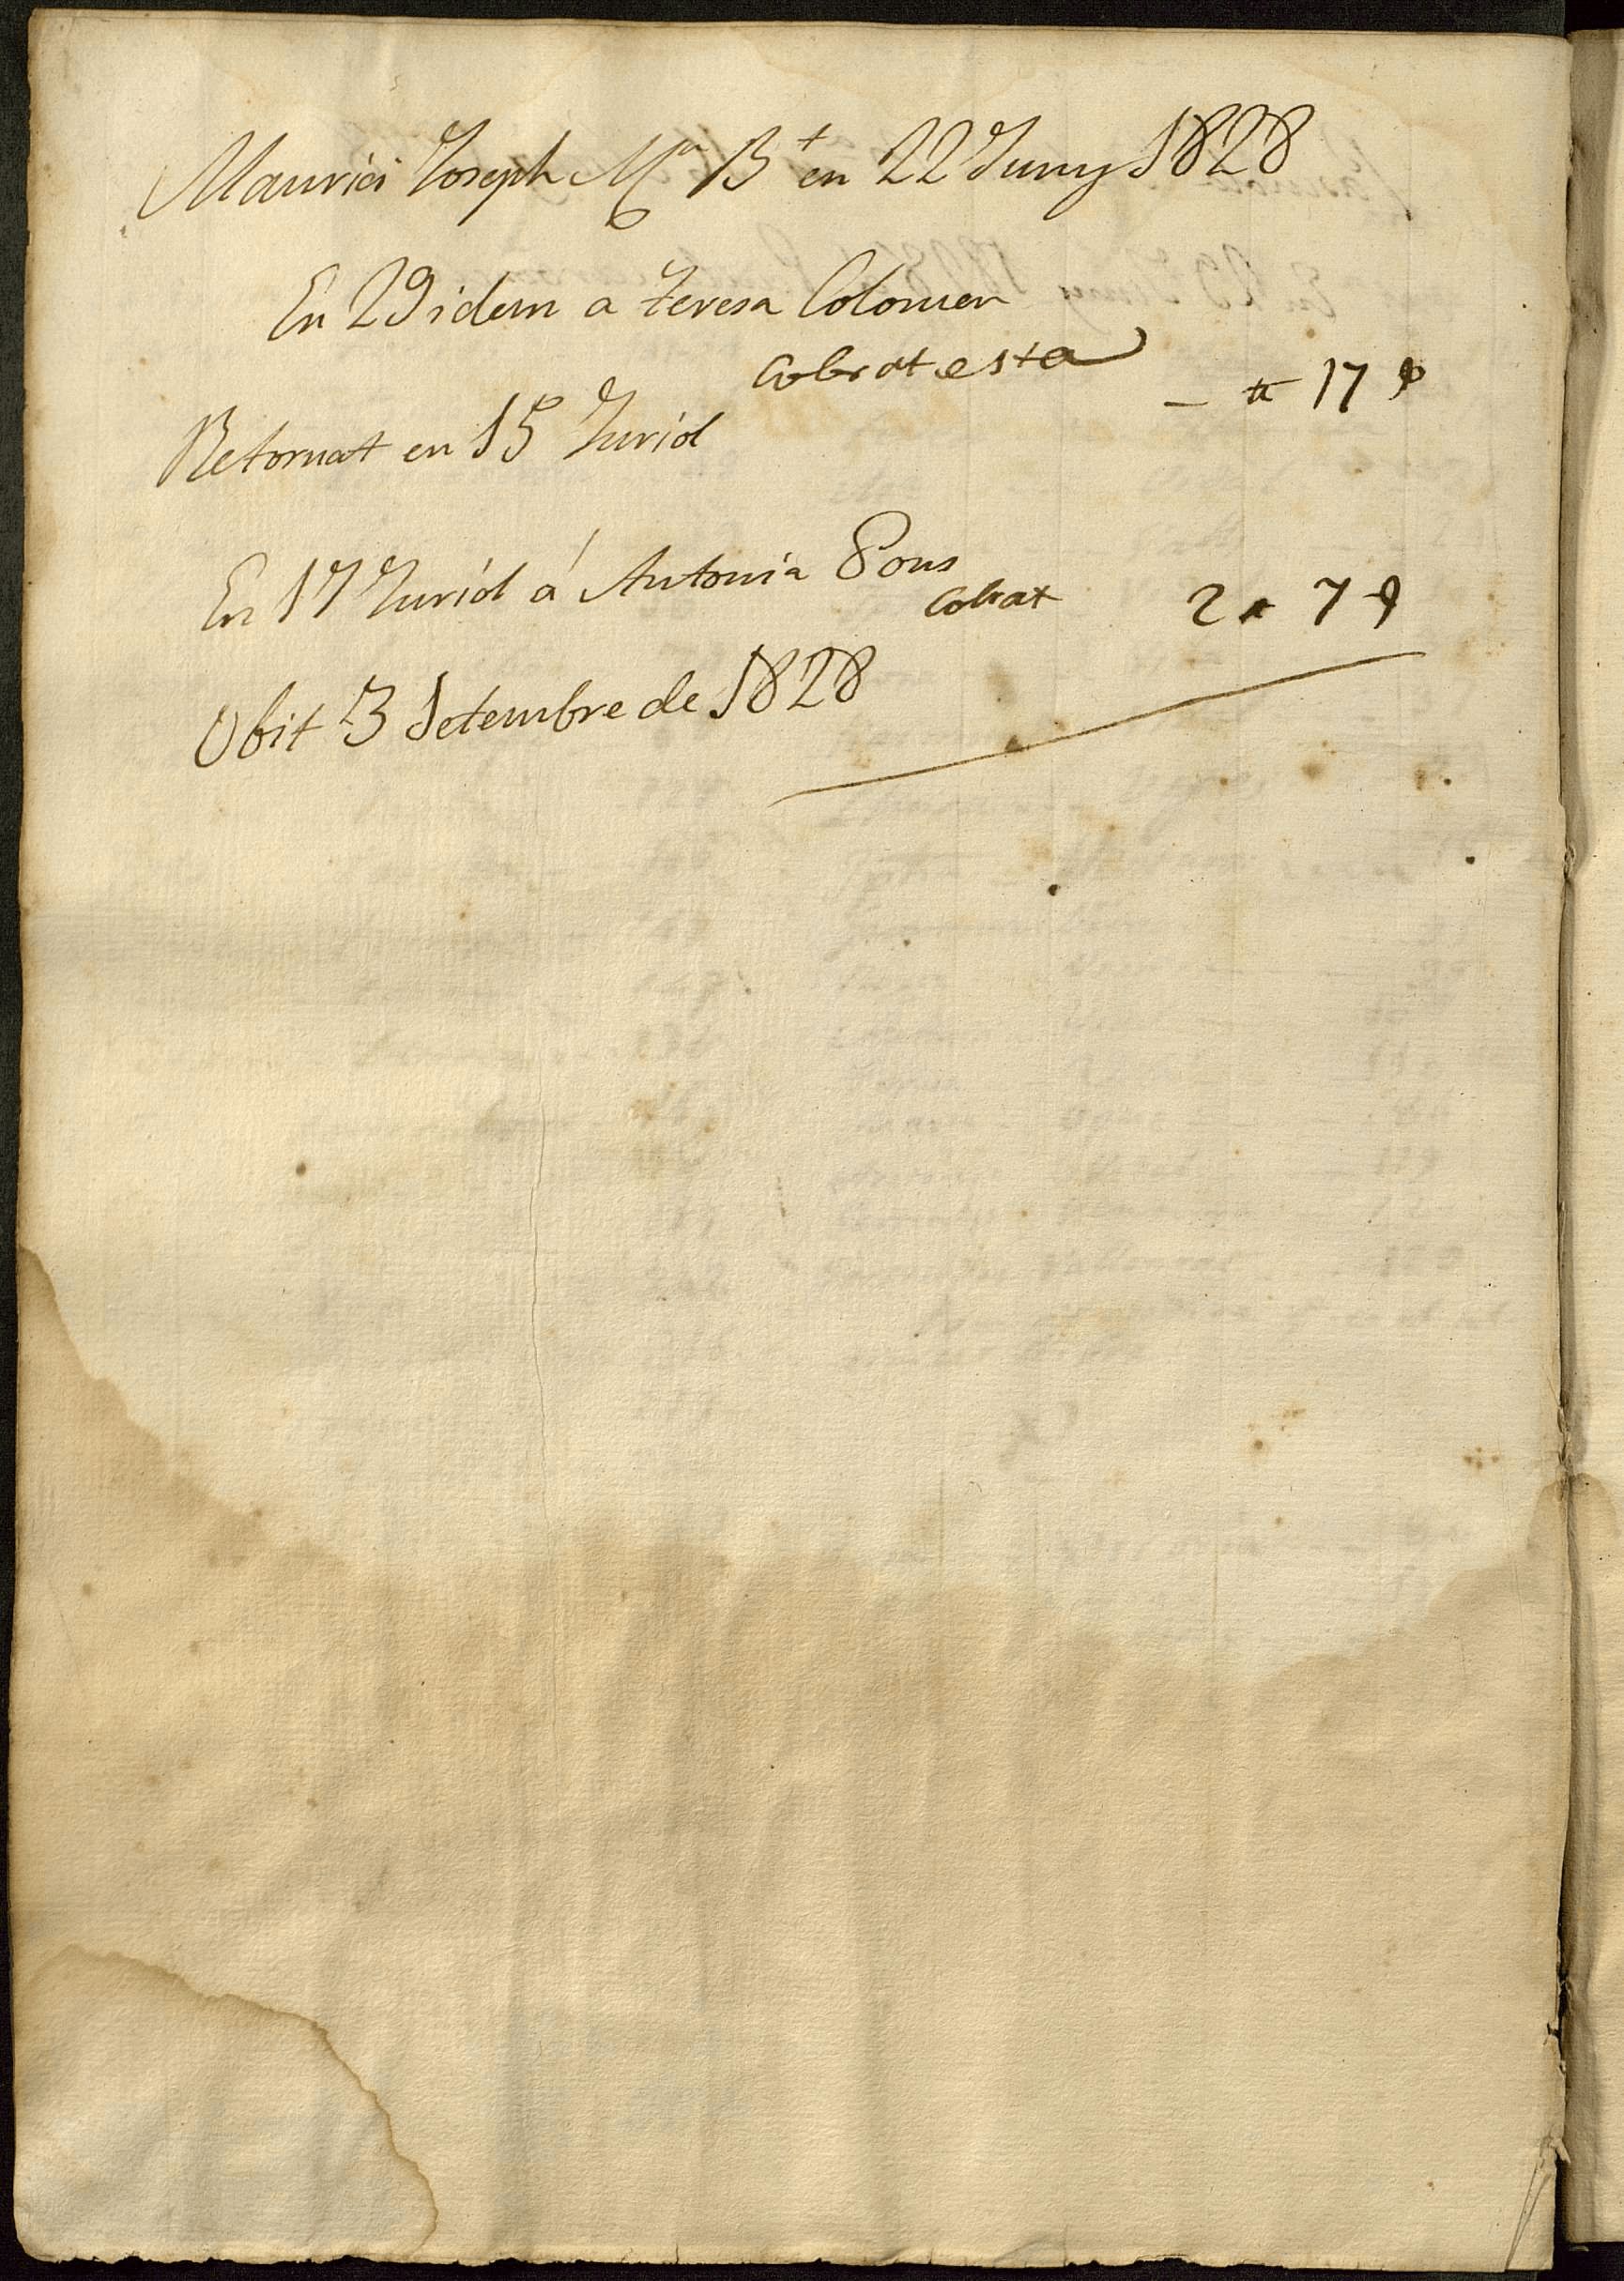 Maurici Joseph Mª Bt en 22 Juny 1828
En 29 idem a Teresa Colomer
Cobrat esta — # 17 ß
Retornat en 15 Juriol
En 17 Juriol á Antonia Pons
Cobrat 2 # 7 ß
Obit 3 Setembre de 1828